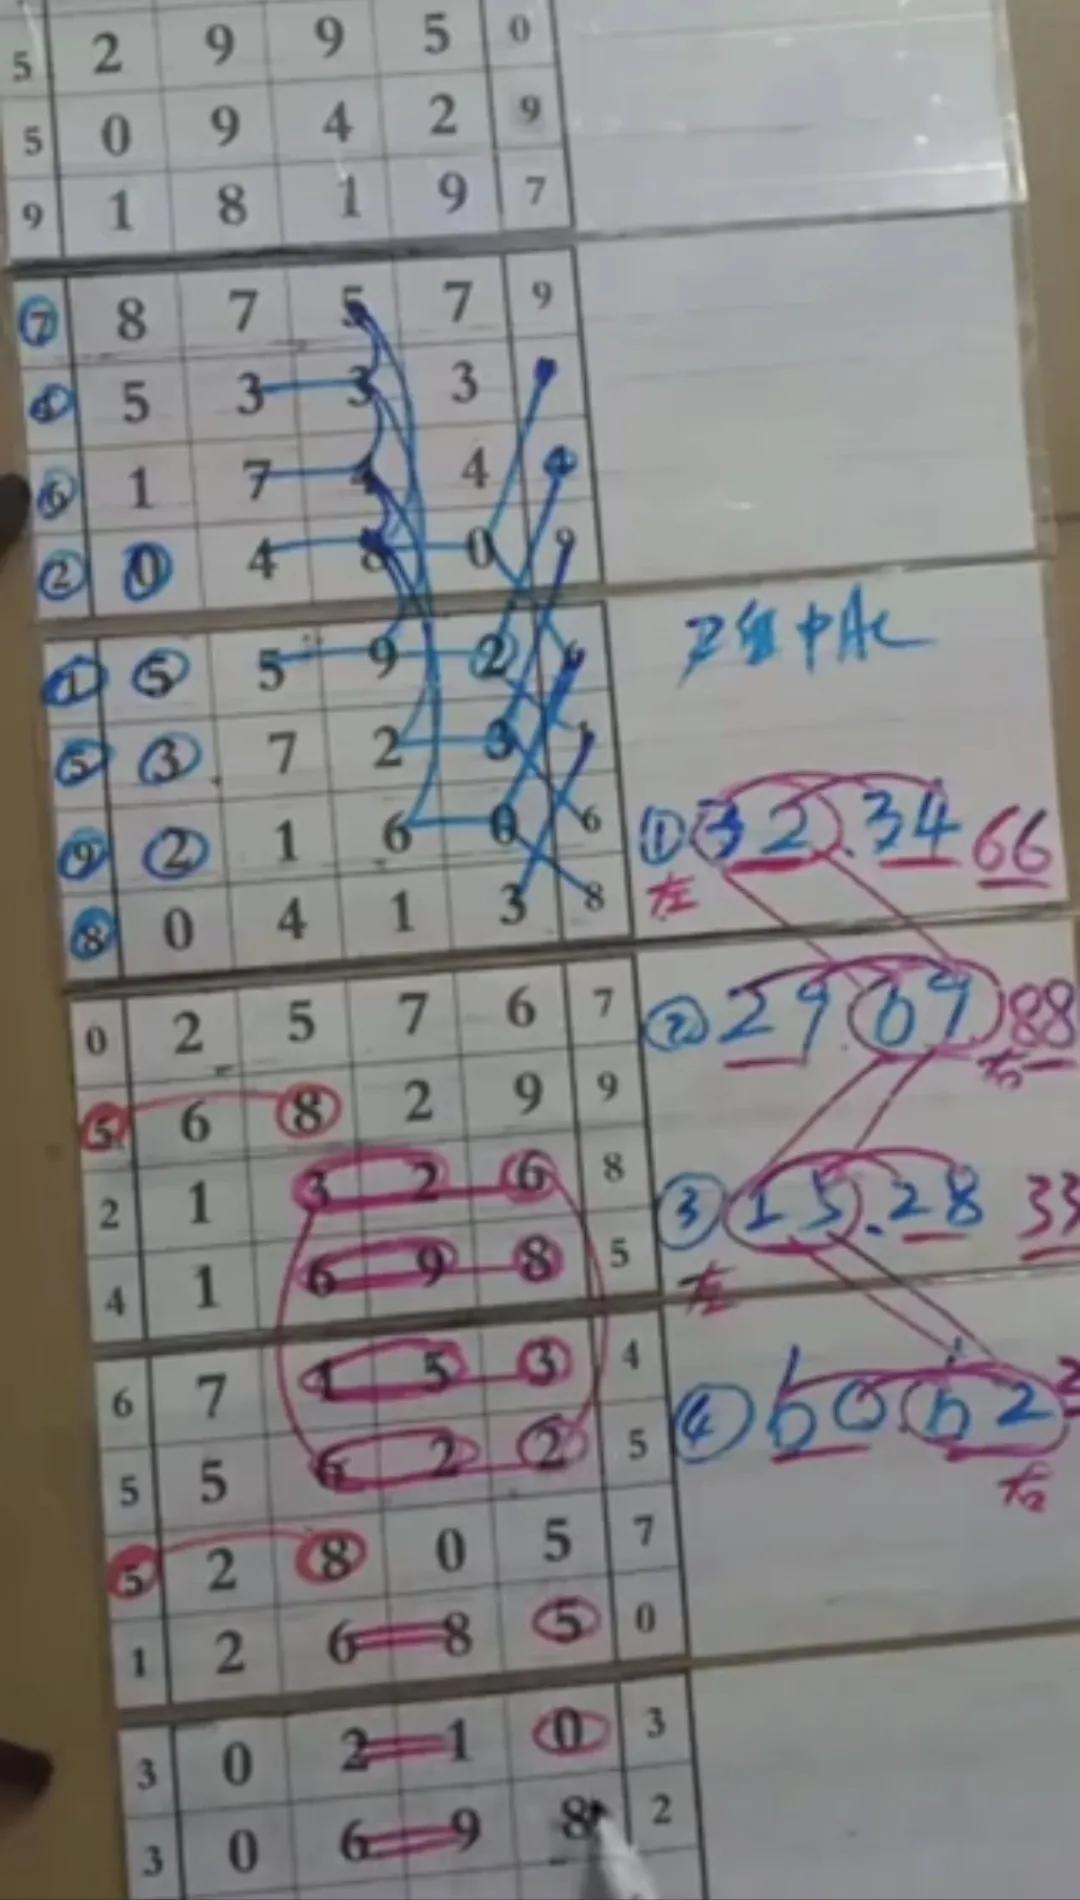 5 2 9 9 5 0
5 0 9 4 2 9
9 1 8 1 9 7
⑦ 8 7 5 7 9
5 3 3 3
⑥ 1 7 4 4 4
② 0 4 8 0 9
① ⑤ 5 9 2
⑤ ③ 7 2 3
⑨ ② 1 6 0 6
⑧ 0 4 1 3 8
中AC
① 32.34 66
左
0 2 5 7 6 7
② 29 69 88
右
5 6 8 2 9 9
2 1 3 2 6 8
③ 15.28 33
左
4 1 6 9 8 5
6 7 1 5 3 4
④ 60.62
右
5 5 6 2 2 5
5 2 8 0 5 7
1 2 6 8 5 0
3 0 2 1 0 3
3 0 6 9 8 2